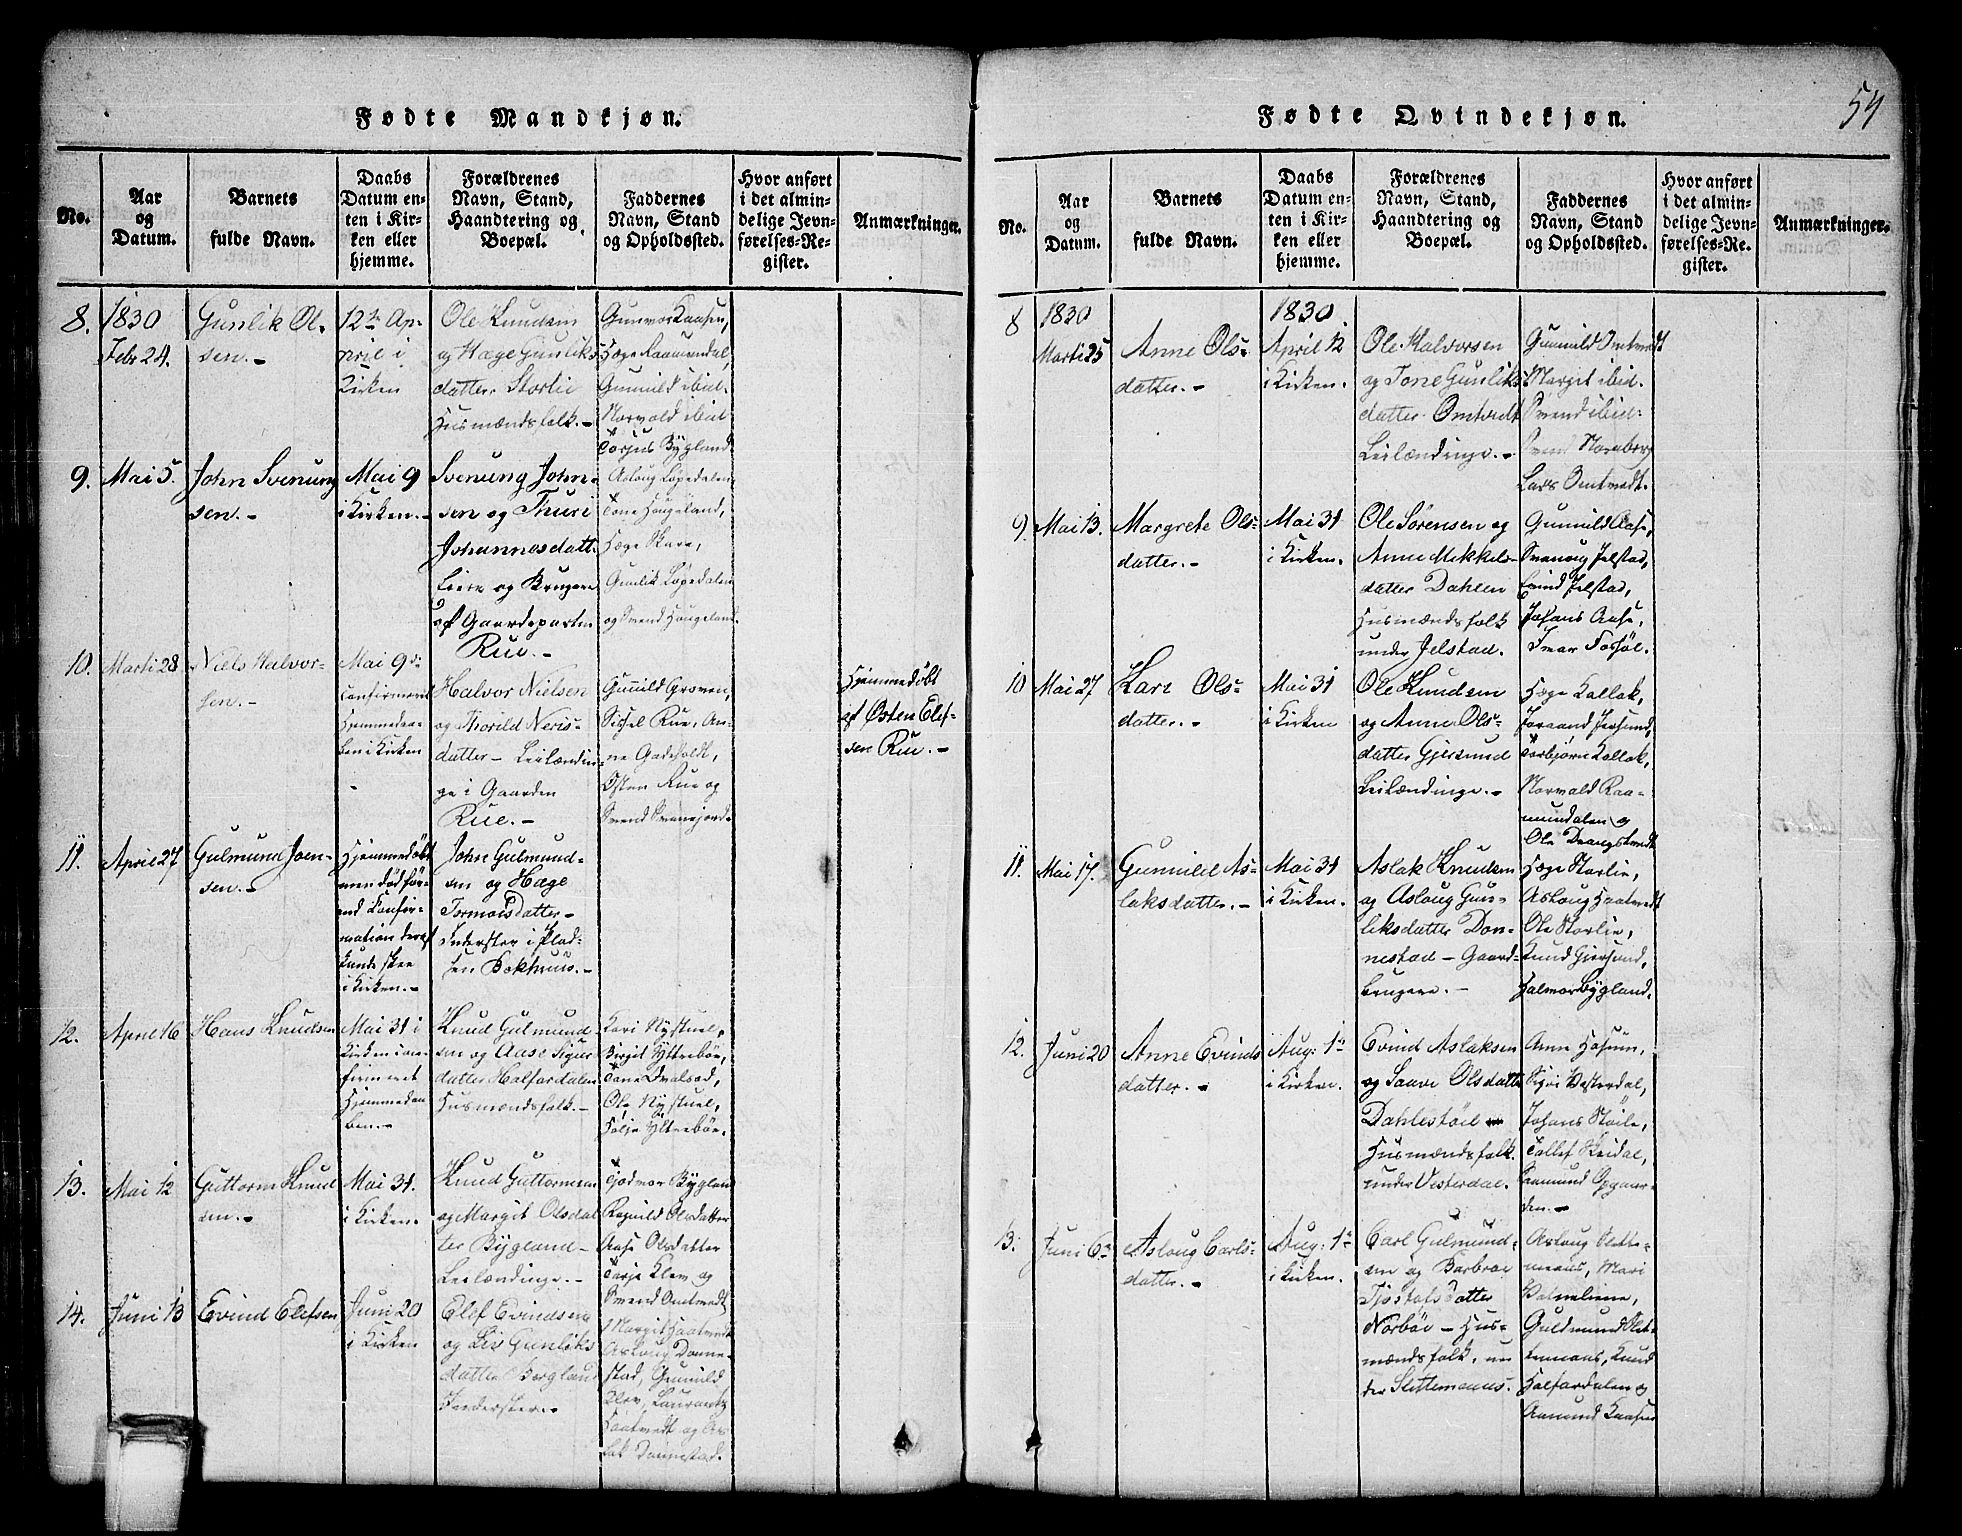 54
Fødte Mandkjøn.
No.
Aar
og
Datum.
Barnets
fulde Navn.
Daabs
Datum en-
ten i Kir-
ken eller
hjemme.
Forældrenes
Navn, Stand,
Haandtering og
Boepæl.
Faddernes
Navn, Stand
og Opholdssted.
Hvor anført
i det almin-
delige Jevn-
førelses-Re-
gister.
Anmærkninger.
8.
1830
Febr 24.
Gunlik Ol-
sen.-
12te Ap-
pril i
Kirken
Ole Knudsen
og Hæge Gunliks
datter Storlie
Husmændsfolk.-
Gunvor Kaasen,
Hæge Raamundal,
Gunnild ibid.
Norvald ibid
Torjus Bygland
9.
Mai 5.
John Svenung
sen.-
Mai 9
i Kirken.-
Svenung John-
sen og Thuri
Johannesdatt.
Leiere og Brugere
af Gaardeparten
Rue.-
Asloug Løpedalen
Tone Haugeland,
Hæge Skare,
Gunlik Løpedalen
og Svend Haugeland.
10.
Marti 28
Niels Halvor-
sen.-
Mai 9de
confirmeret
Hjemmedaa-
ben i Kirken
Halvor Nielsen
og Thorild Neris-
datter- Leilændin-
ge i Gaarden
Rue.-
Gunnild Groven,
Sissel Rue, An-
ne Gadeholdt,
Østen Rue og
Svend Svanejord.
Hjemmedøbt
af Østen Elef-
sen Rue.-
11.
April 27
Gulmund Joen-
sen.-
Hjemmedøbt
men død før-
end Confir-
mation deraf
kunde skee
i Kirken.-
John Gulmund-
sen og Hæge
Tormodsdatter-
Inderster i Plad-
sen Bokhuus.-
12.
April 16
Hans Knudsen
Mai 31 i
Kirken con-
firmeret
Hjemmedaa
ben.-
Knud Gulmund
sen og Aase Sigur
datter Halfardalen
Husmændsfolk.-
Kari Nystuel,
Birgit Yttrebøe,
Tone Dvalsod,
Ole Nystuel,
Tolje Yttrebøe.
13.
Mai 12
Guttorm Knud
sen.-
Mai 31.
i Kirken.-
Knud Guttormsen
og Margit Olsdat
ter Bygland-
Leilændinge.-
Tjodvor Bygland
Ragnild Olsdatter
Aase Olsdatter
Tarje Klev og
Svend Omtvedt
14.
Juni 13
Evind Elefsen
Juni 20
i Kirken
Elef Evindsen
og Liv Gunliks
datter Bergland
Inderster.-
Margit Haatvedt
Asloug Donne-
stad, Gunnild
Klev, Laurantz
Haatvedt og As
lak Donnestad.
Fødte Qvindekjøn.
No.
Aar
og
Datum.
Barnets
fulde Navn.
Daabs
Datum en-
ten i Kir-
ken eller
hjemme.
Forældrenes
Navn, Stand,
Haandtering og
Boepæl.
Faddernes
Navn, Stand
og Opholdssted.
Hvor anført
i det almin-
delige Jevn-
førelses-Re-
gister.
Anmærkninger.
8
1830
Marti 25
Anne Ols-
datter.-
1830.
April 12
i Kirken.
Ole Halvorsen
og Tone Gunliks
datter Omtvedt
Leilændinge.-
Gunnild Omtvedt
Margit ibid.
Svend ibid.
Svend Noreborg
Lars Omtvedt.
9.
Mai 13.
Margrete Ols-
datter.-
Mai 31
i Kirken.
Ole Sørensen og
Anne Mekkels-
datter Dahlen
Husmændsfolk
under Jelstad.
Gunnild Aase,
Svanoug Jelstad,
Evind Jelstad,
Johans Aase,
Ivar Fossøl.
10
Mai 27
Kari Ols-
datter.-
Mai 31
i Kirken
Ole Knudsen
og Anne Ols-
datter Gjersund
Leilændinge.-
Hæge Kallak,
Joraand Jersund,
Torbjørn Kallak,
Norvald Raa-
mundalen og
Ole Drangstvedt
11.
Mai 17.
Gunnild As-
laksdatter.-
Mai 31
i Kirken.
Aslak Knudsen
og Asloug Gun-
leksdatter Don-
nestad- Gaard-
brugere.-
Hæge Storlie,
Asloug Haatvedt
Ole Storlie,
Knud Gjersund,
Halvor Bygland.
12.
Juni 20
Anne Evinds
datter.-
Aug: 1te
i Kirken.
Evind Aslaksen
og Saave Olsdatter
Dahlestøil
Husmændsfolk
under Vesterdal.
Anne Hosum,
Sigri Vesterdal,
Johans Støile,
Tallef Keidal,
Aamund Opgaar-
den.-
13.
Juni 6te
Asloug Carls-
datter.-
Aug: 1te
i Kirken.
Carl Gulmund-
sen og Barbroe
Tjostofsdatter
Norbøe- Hus-
mændsfolk, un
der Slettemaaus.
Asloug Slette-
maaus, Mari
Vatneliene,
Guldmund Slet-
temaaus, Knud
Halfardalen og
Aamund Kaasen